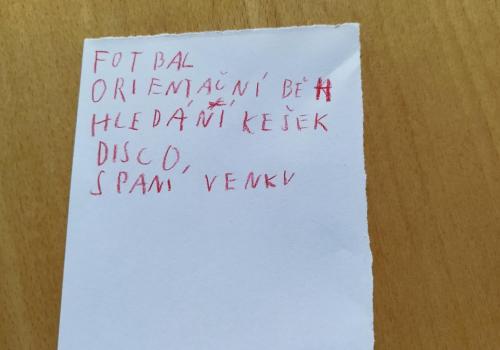 FOTBAL
ORIENTAČNÍ BĚH
HLEDÁNÍ KEŠEK
DISCO,
SPANÍ VENKU